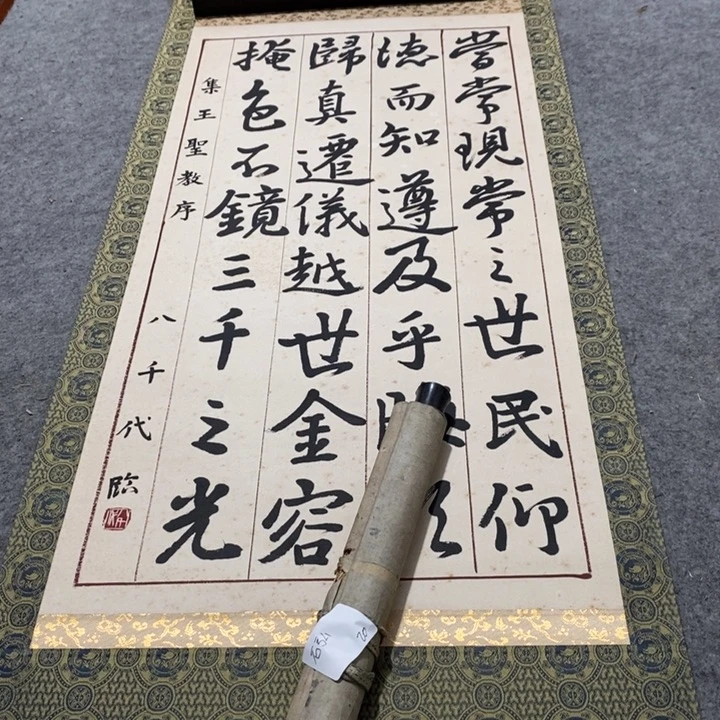 當常現常之世民仰
徳而知遵及乎
歸真遷儀越世金容
掩色不鏡三千之光
集王聖教序
八千代臨